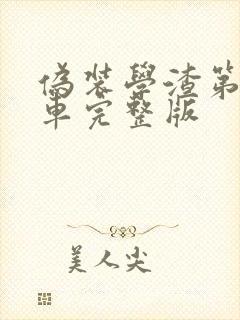 偽裝學渣第
車完整版
美人尖